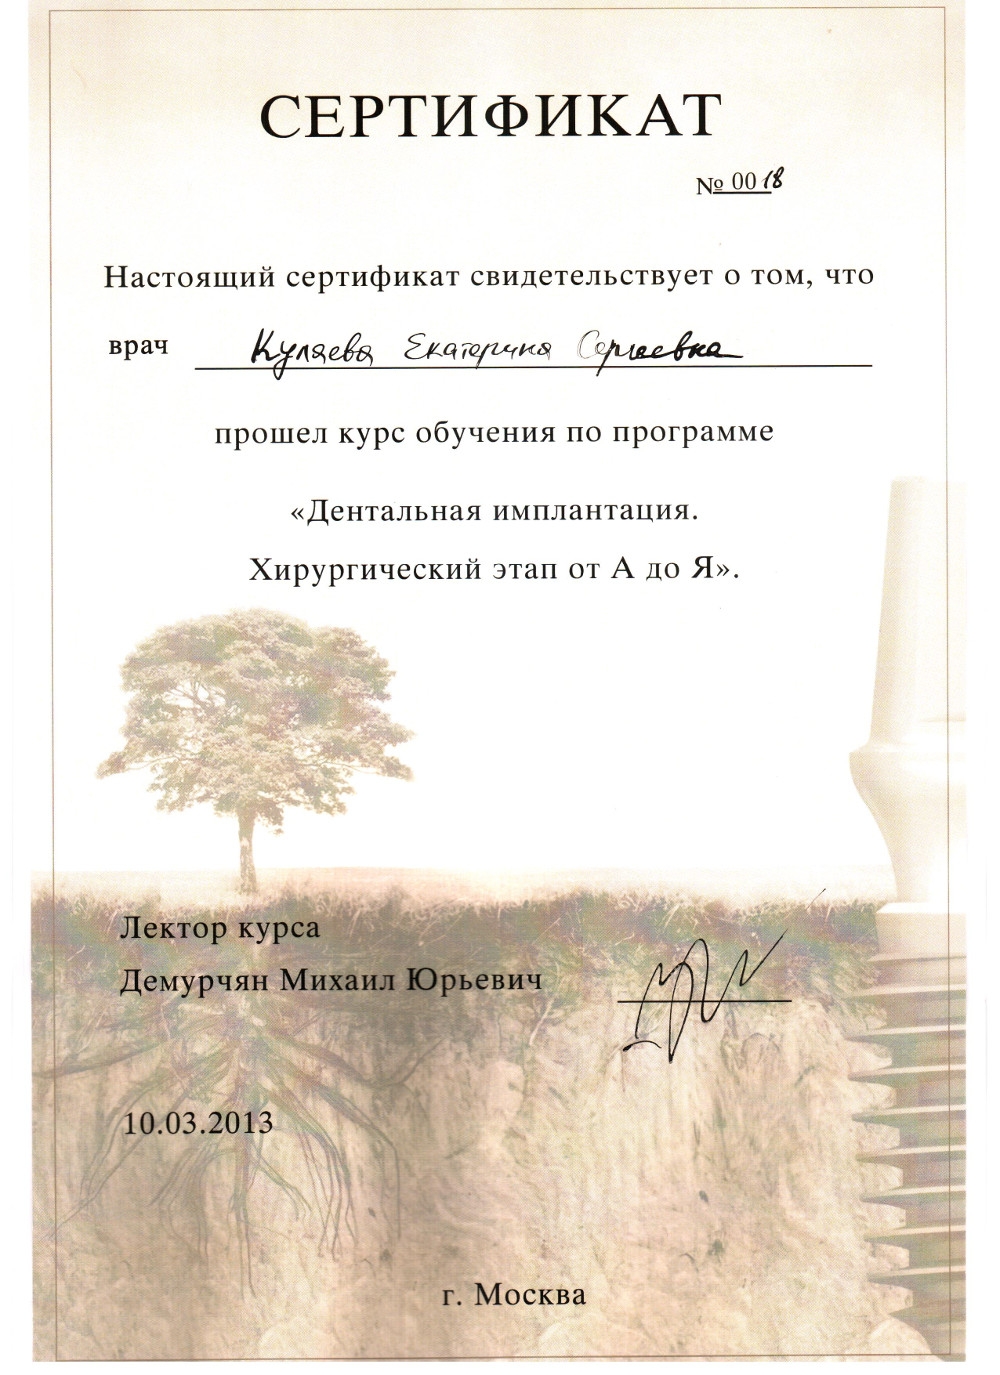 СЕРТИФИКАТ
№ 0018
Настоящий сертификат свидетельствует о том, что
врач Куляева Екатерина Сергеевна
прошел курс обучения по программе
«Дентальная имплантация.
Хирургический этап от А до Я».
Лектор курса
Демурчян Михаил Юрьевич
10.03.2013
г. Москва